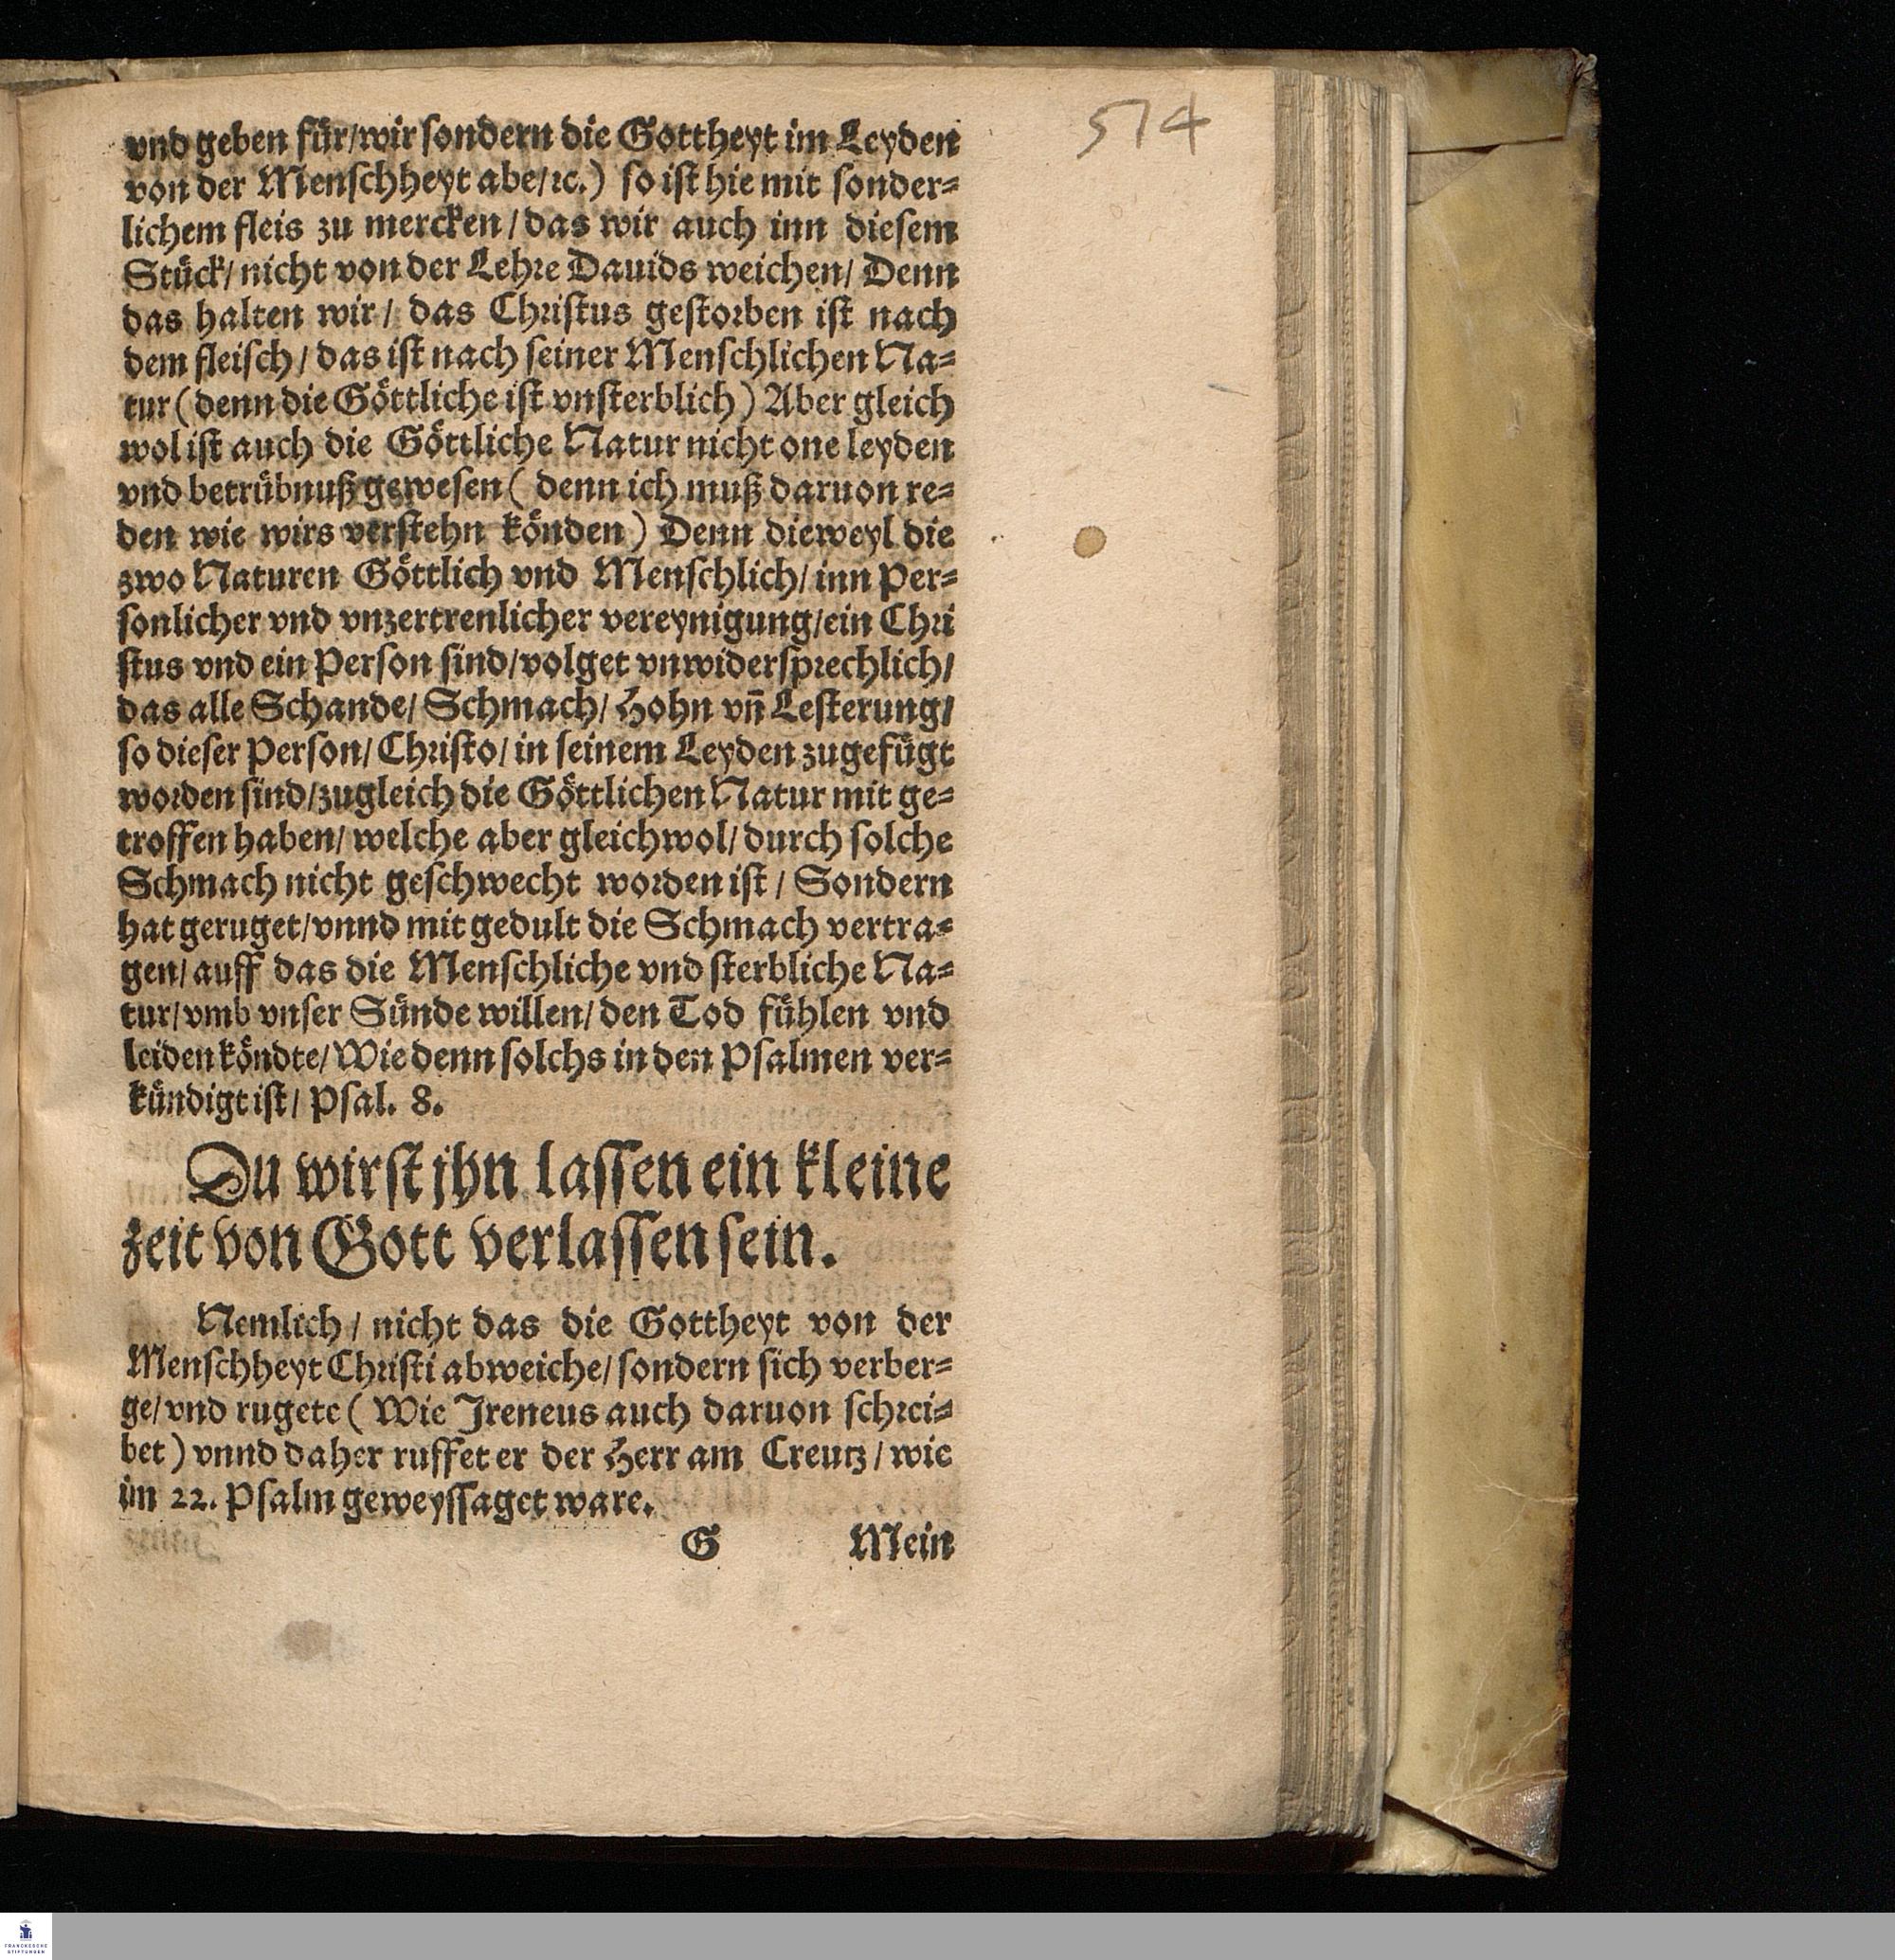 574
vnd geben für/wir sondern die Gottheyt im Leyden
von der Menschheyt abe/ꝛc.) so ist hie mit sonder-
lichem fleis zu mercken/das wir auch inn diesem
Stück/nicht von der Lehre Dauids weichen/ Denn
das halten wir/ das Christus gestorben ist nach
dem fleisch/ das ist nach seiner Menschlichen Na-
tur (denn die Göttliche ist vnsterblich) Aber gleich
wol ist auch die Göttliche Natur nicht one leyden
vnd betrübnuß gewesen ( denn ich muß daruon re-
den wie wirs verstehn könden) Denn dieweyl die
zwo Naturen Göttlich vnd Menschlich/ inn Per-
sonlicher vnd vnzertrenlicher vereynigung/ein Chri
stus vnd ein Person sind/volget vnwidersprechlich/
das alle Schande/ Schmach/ Hohn vñ Lesterung/
so dieser Person/ Christo/ in seinem Leyden zugefügt
worden sind/zugleich die Göttlichen Natur mit ge-
troffen haben/ welche aber gleichwol/ durch solche
Schmach nicht geschwecht worden ist / Sondern
hat geruget/vnnd mit gedult die Schmach vertra-
gen/ auff das die Menschliche vnd sterbliche Na-
tur/vmb vnser Sünde willen/ den Tod fühlen vnd
leiden köndte/ Wie denn solchs in den Psalmen ver-
kündigt ist/ Psal. 8.
Du wirst jhn lassen ein kleine
zeit von Gott verlassen sein.
Nemlich / nicht das die Gottheyt von der
Menschheyt Christi abweiche/ sondern sich verber-
ge/ vnd rugete ( Wie Ireneus auch daruon schrei-
bet ) vnnd daher ruffet er der Herr am Creutz / wie
im 22. Psalm geweyssaget ware.
G Mein
FRANCKESCHE
STIFTUNGEN